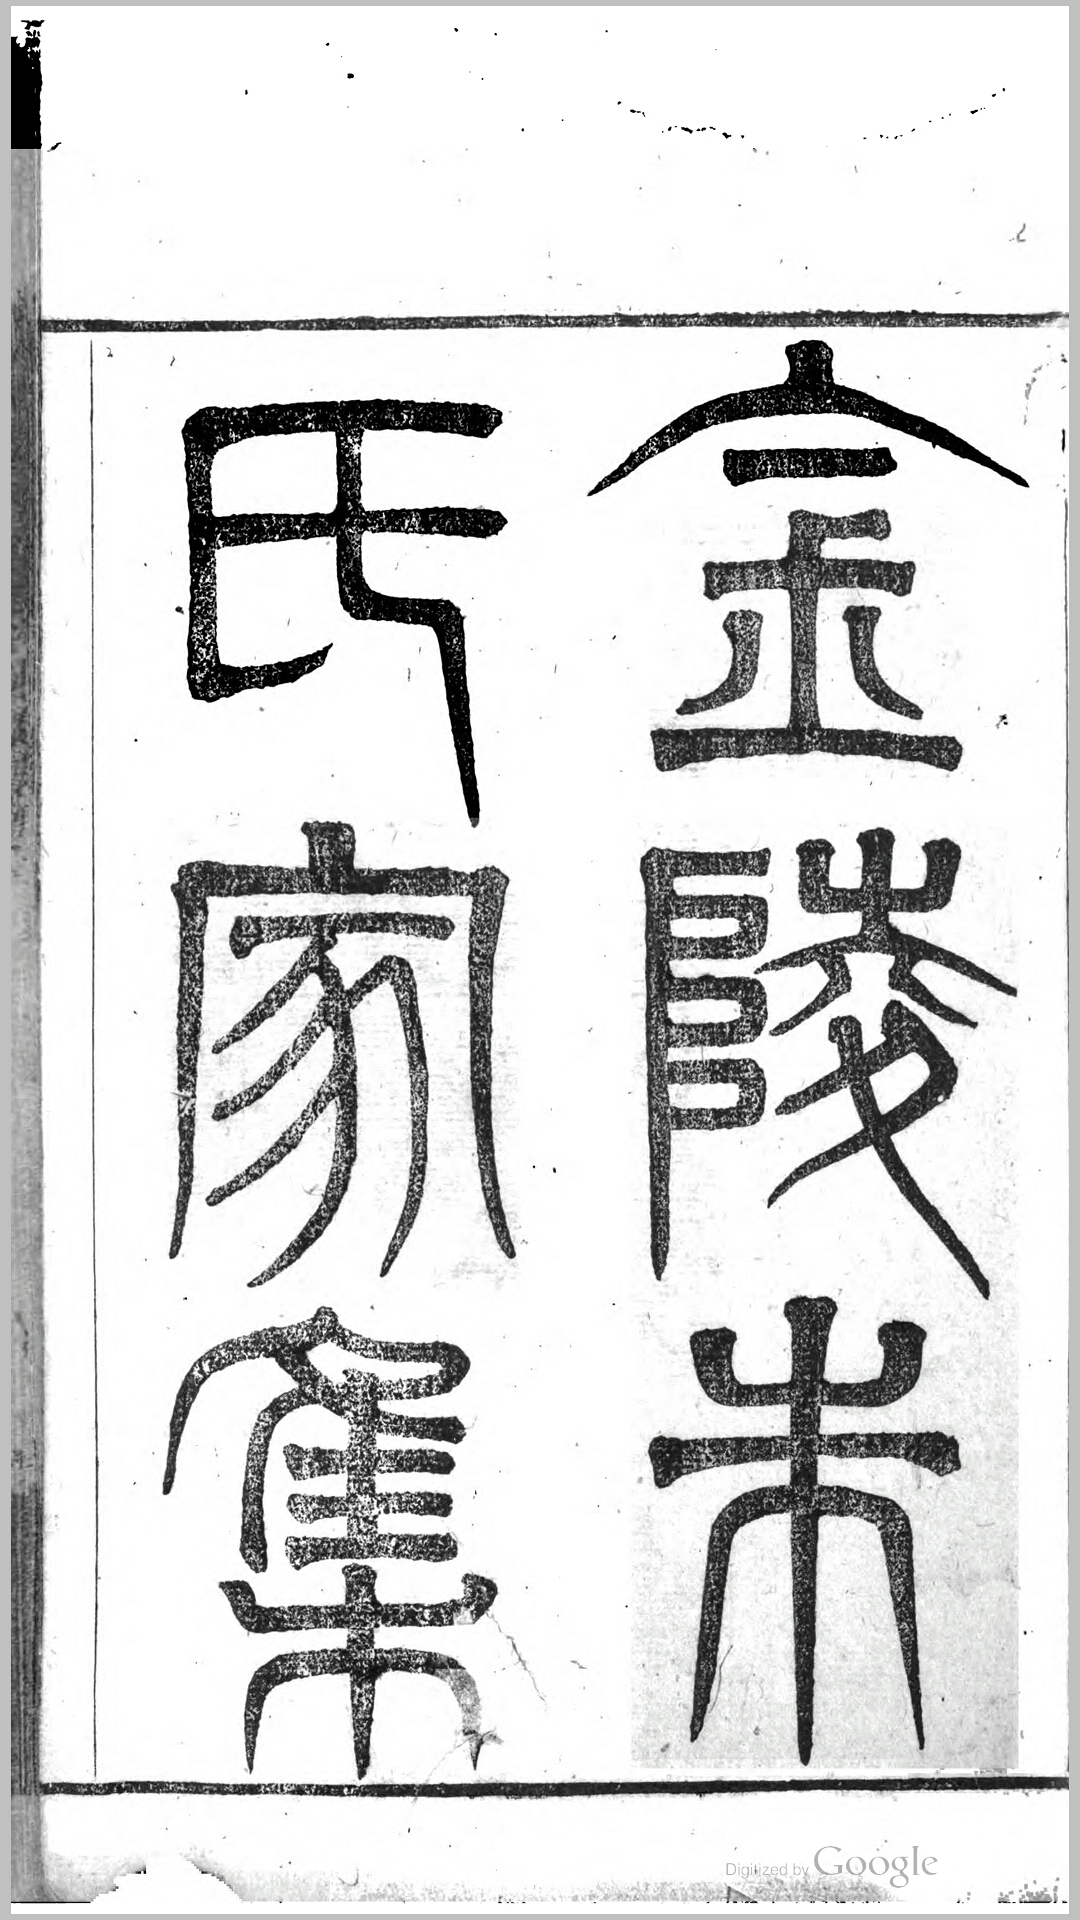 金陵朱
氏家集
Digitized by Google